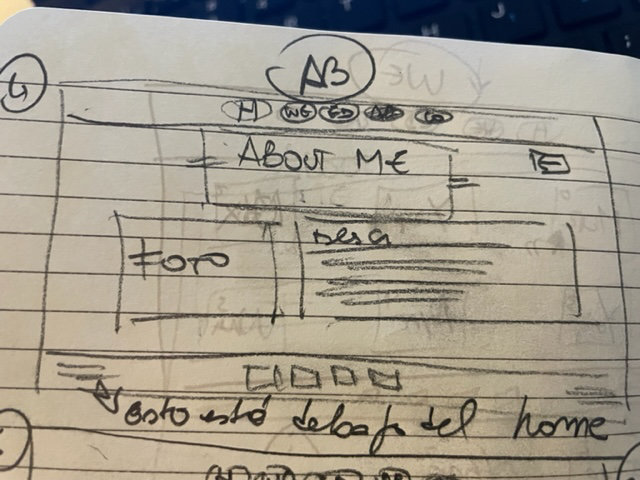 4
AB
H WE ED AB CO
ABOUT ME E
FOTO
Desc
esto está debajo del home